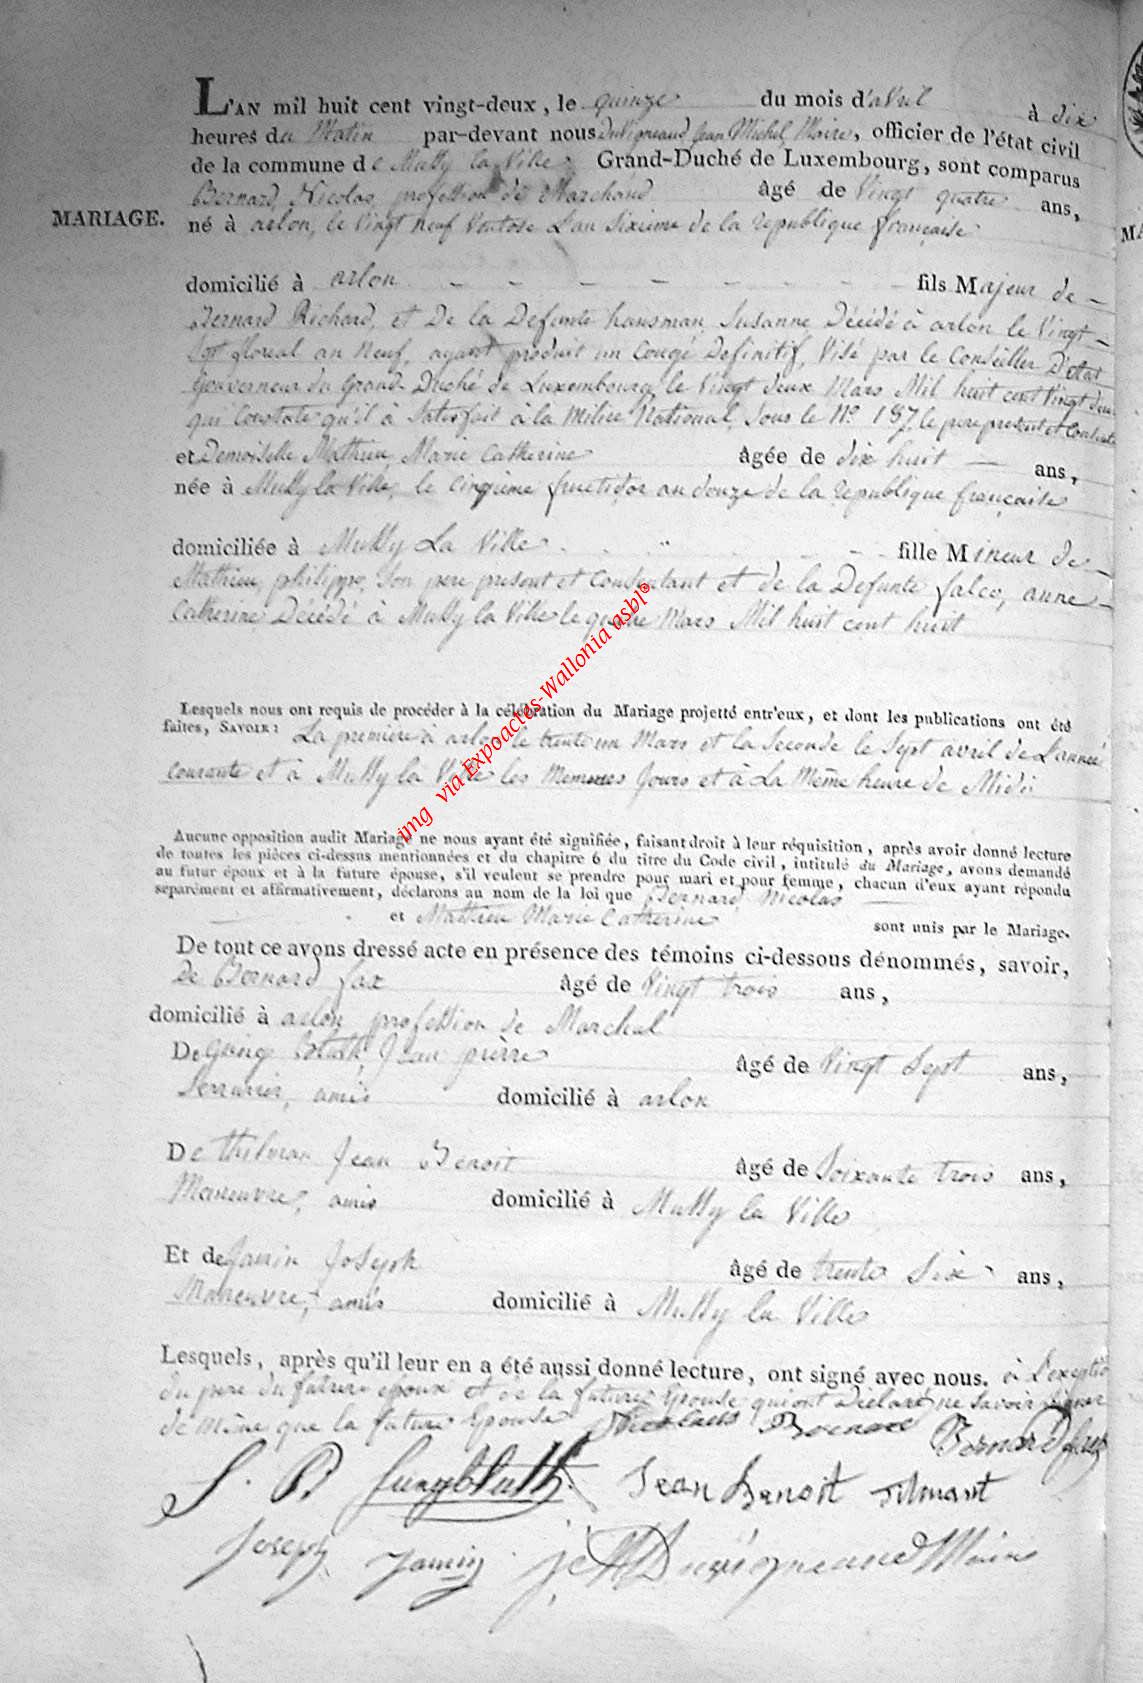 L'AN mil huit cent vingt-deux, le quinze du mois d'avril à dix
heures du Matin par-devant nous Duvigneaud Jean Michel Maire, officier de l'état civil
de la commune de Mussy la Ville Grand-Duché de Luxembourg, sont comparus
Bernard, Nicolas, profession de Marchand âgé de Vingt quatre ans,
MARIAGE.
né à arlon, le Vingt neuf Ventose L'an Sixieme de la republique française
domicilié à arlon fils Majeur de
Bernard Richard, et De la Defunte hausman, Susanne Décédé à arlon le Vingt
Sept floreal an Neuf, ayant produit un Congé Definitif, Visé par le Conseiller D'etat
Gouverneur du Grand-Duché de Luxembourg le Vingt deux Mars Mil huit cent Vingt deux
qui Constate qu'il à Satisfait à la Milice National, Sous le No. 187, le pere present et Consentant
et Demoiselle Mathieu, Marie Catherine âgée de dix huit ans,
née à Mussy la Ville, le Cinquieme fructidor an douze de la republique française
domiciliée à Mussy La Ville fille Mineur de
Mathieu, philippe, Son pere present et Consentant et de la Defunte falco, anne
Catherine Décédé à Mussy la Ville le quatre Mars Mil huit cent huit
Lesquels nous ont requis de procéder à la célébration du Mariage projetté entr'eux, et dont les publications ont été
faites, SAVOIR: La premiere à arlon le trente un Mars et la Seconde le Sept avril de L'année
courante et à Mussy la Ville les Memes Jours et à La Même heure de Midi
Aucune opposition audit Mariage ne nous ayant été signifiée, faisant droit à leur réquisition, après avoir donné lecture
de toutes les pièces ci-dessus mentionnées et du chapitre 6 du titre du Code civil, intitulé du Mariage, avons demandé
au futur époux et à la future épouse, s'il veulent se prendre pour mari et pour femme, chacun d'eux ayant répondu
séparément et affirmativement, déclarons au nom de la loi que Bernard, Nicolas
et Mathieu Marie Catherine sont unis par le Mariage.
De tout ce avons dressé acte en présence des témoins ci-dessous dénommés, savoir,
De Bernard âgé de Vingt trois ans,
domicilié à arlon profession de Marchal
De Jean pierre âgé de Vingt Sept ans,
Serrurier, amis domicilié à arlon
De thilman Jean Benoit âgé de Soixante trois ans,
Maneuvre, amis domicilié à Mussy la Ville
Et de Jamin Joseph âgé de trente Six ans,
Maneuvre, amis domicilié à Mussy la Ville
Lesquels, après qu'il leur en a été aussi donné lecture, ont signé avec nous. à L'exeption
du pere du futur epoux et de la future Epouse qui ont Déclaré ne Savoir Signer
de Même que la future Epouse Nicolaus Bernard Bernard
J. P. Jungbluth Jean Benoit Tilmant
Joseph Jamin J M Duvigneaud Maire
img via Expoactes-Wallonia asbl®